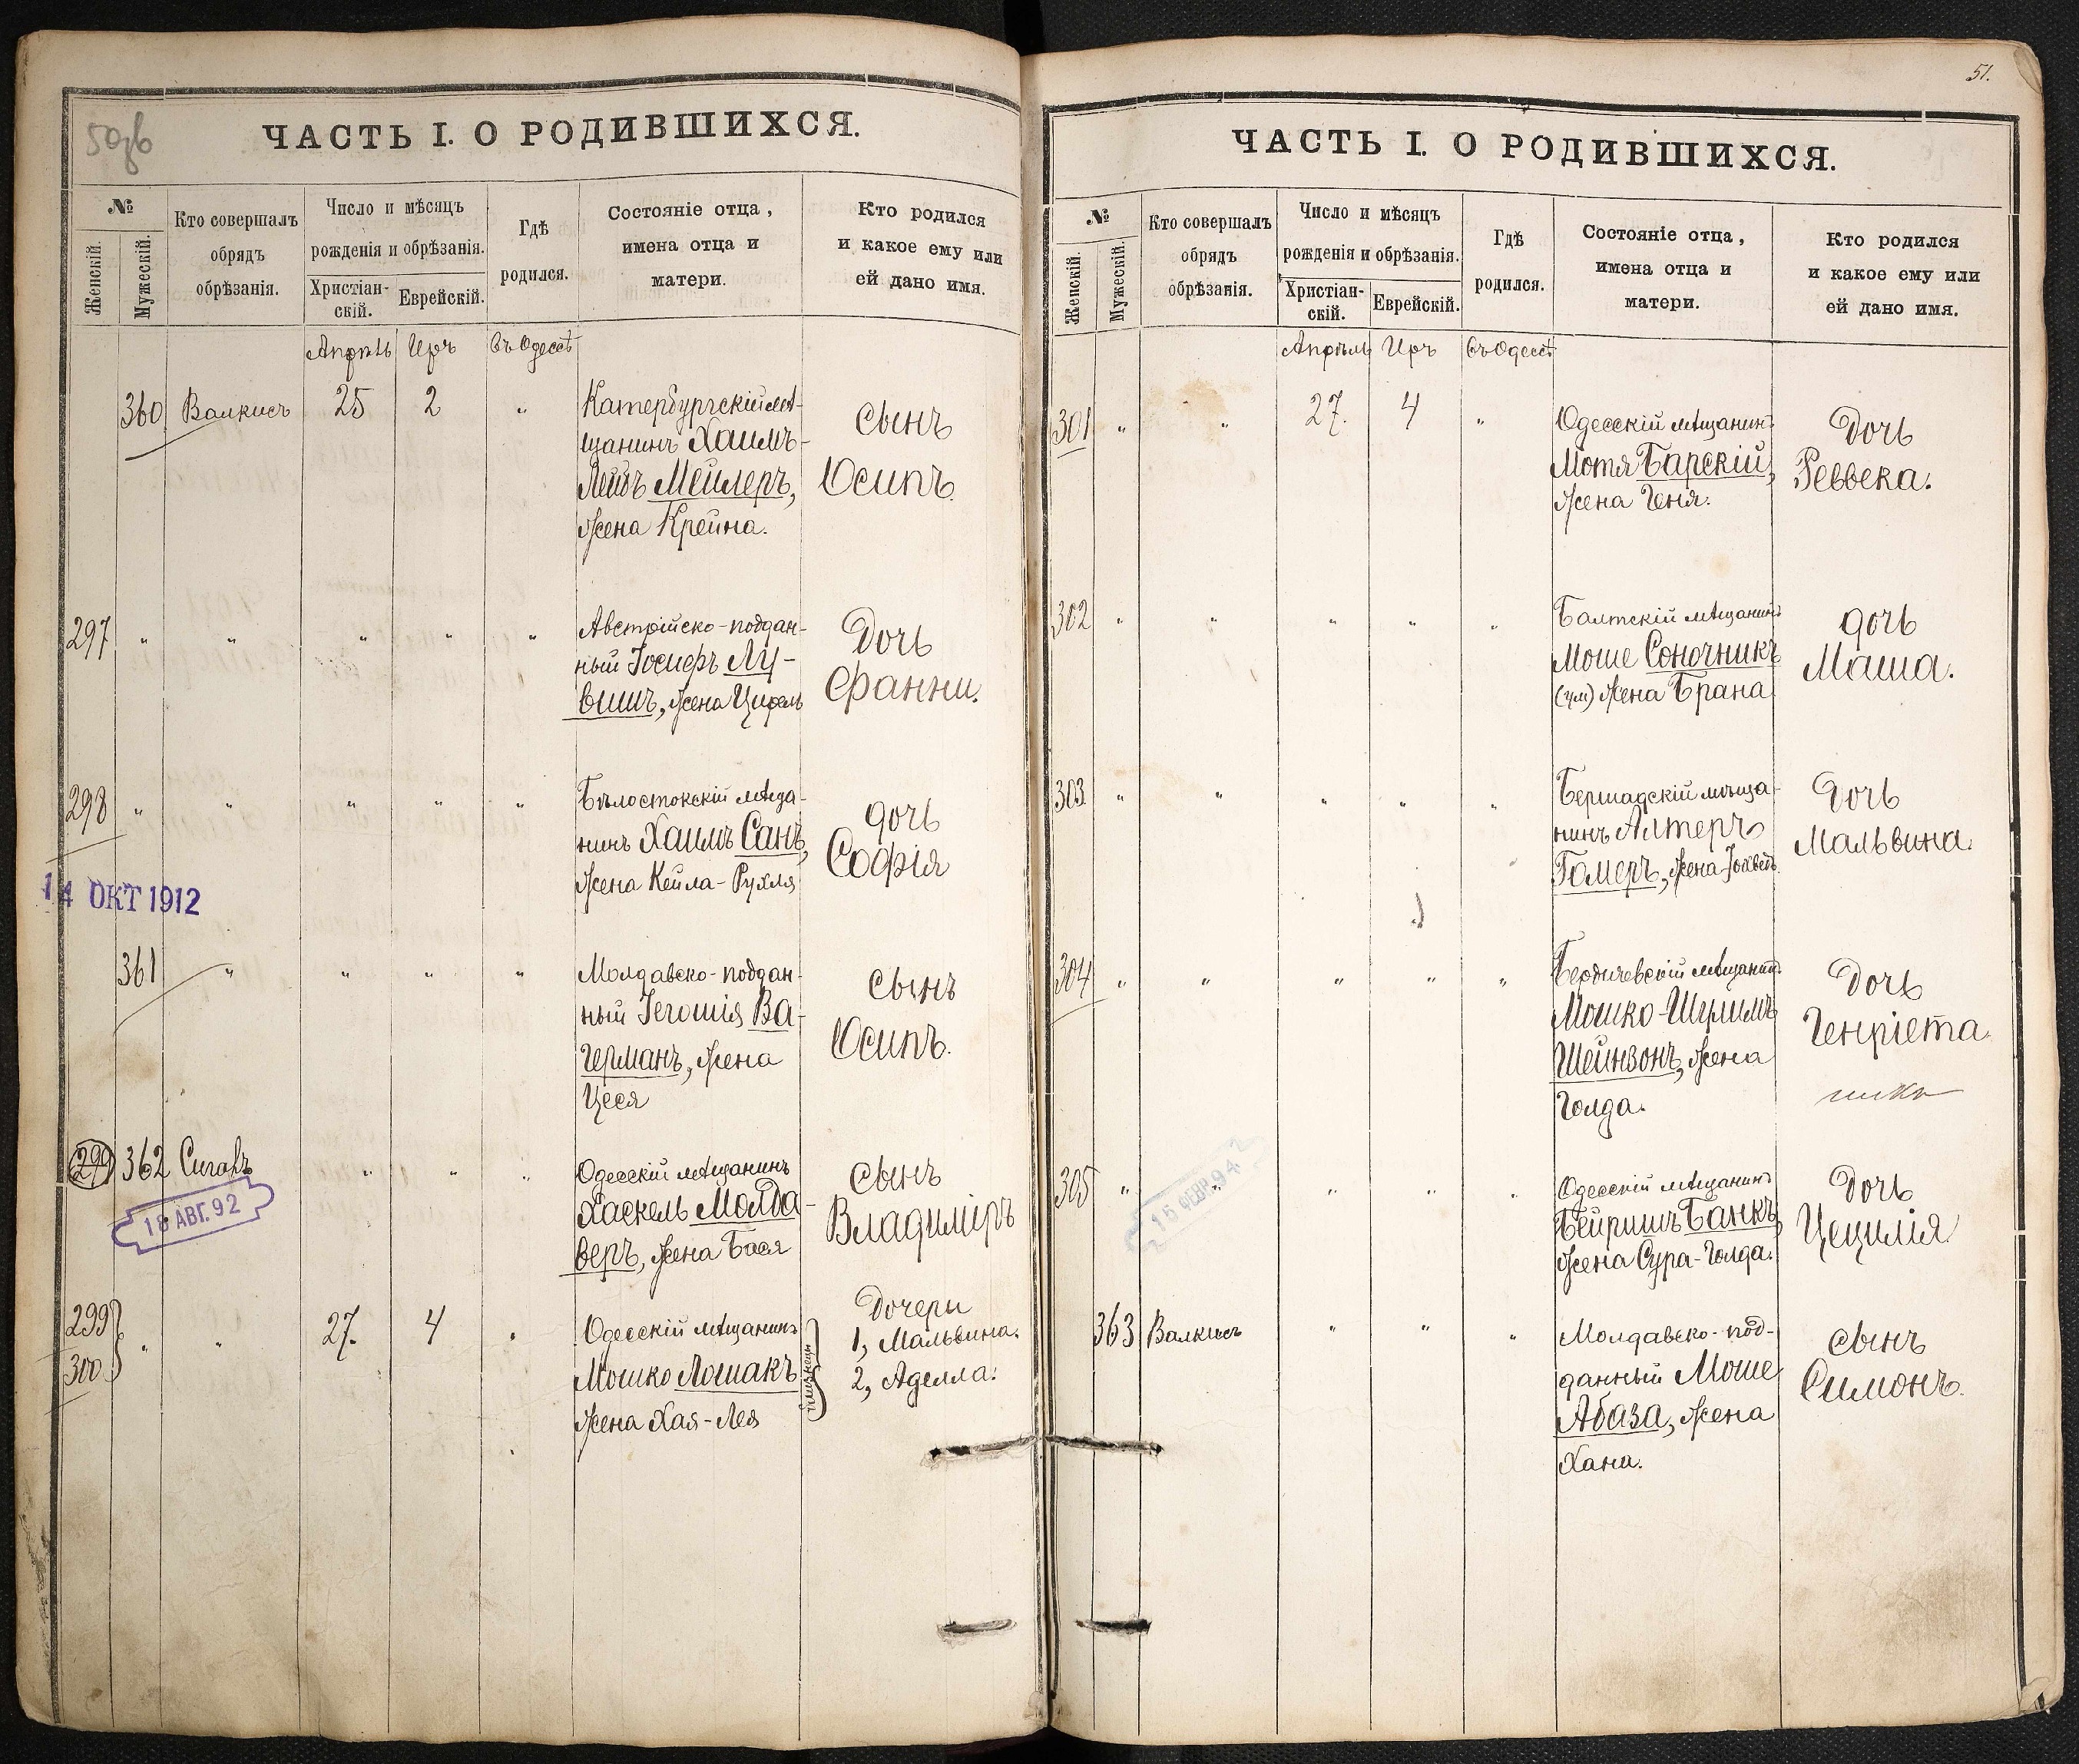 50об
ЧАСТЬ I. О РОДИВШИХСЯ.
№
Женскій.
Мужескій.
Кто совершалъ
обрядъ
обрѣзанія.
Число и мѣсяцъ
рожденія и обрѣзанія.
Христіан-
скій.
Еврейскій.
Гдѣ
родился.
Состояніе отца,
имена отца и
матери.
Кто родился
и какое ему или
ей дано имя.
Апрѣль Иръ Въ Одессѣ
360 Валкисъ 25 2 "
Катербургскій мѣ-
щанинъ Хаимъ-
Лейбъ Мейлеръ,
жена Крейна.
Сынъ
Осипъ.
297 " " " " "
Австрійско-поддан-
ный Іосифъ Лу-
вишъ, жена Цирель
Дочь
Фанни.
298 " " " " "
Бѣлостокскій мѣща-
нинъ Хаимъ Санъ,
жена Кейла-Рухля
Дочь
Софія
14 ОКТ 1912
361 " " " "
Молдавско-поддан-
ный Іегошія Ва-
германъ, жена
Цеся
Сынъ
Осипъ.
299 362 Сигалъ " " "
18 АВГ. 92
Одесскій мѣщанинъ
Хаскель Молда-
веръ, жена Бася
Сынъ
Владиміръ
299
300
" " 27. 4 "
Одесскій мѣщанинъ
Мошко Лошакъ
жена Хая-Лея
близнецы
Дочери
1, Мальвина.
2, Аделла.
51.
ЧАСТЬ I. О РОДИВШИХСЯ.
№
Женскій.
Мужескій.
Кто совершалъ
обрядъ
обрѣзанія.
Число и мѣсяцъ
рожденія и обрѣзанія.
Христіан-
скій.
Еврейскій.
Гдѣ
родился.
Состояніе отца,
имена отца и
матери.
Кто родился
и какое ему или
ей дано имя.
Апрѣль Иръ Въ Одессѣ
301 " " 27. 4 "
Одесскій мѣщанинъ
Мотя Барскій,
жена Геня.
Дочь
Реввека.
302 " " " " "
Балтскій мѣщанинъ
Моше Соночникъ
(ум) жена Брана
Дочь
Маша.
303 " " " " "
Бершадскій мѣща-
нинъ Алтеръ
Гомеръ, жена Іохведъ
Дочь
Мальвина.
304 " " " " "
Бердичевскій мѣщанинъ
Мошко-Шулимъ
Шейнзонъ, жена
Голда.
Дочь
Генріета
305 " " " " "
15 ФЕВР. 94
Одесскій мѣщанинъ
Бейришъ Банкъ,
жена Сура-Голда.
Дочь
Цецилія
363 Валкисъ " " "
Молдавско-под-
данный Моше
Абаза, жена
Хана.
Сынъ
Симонъ.